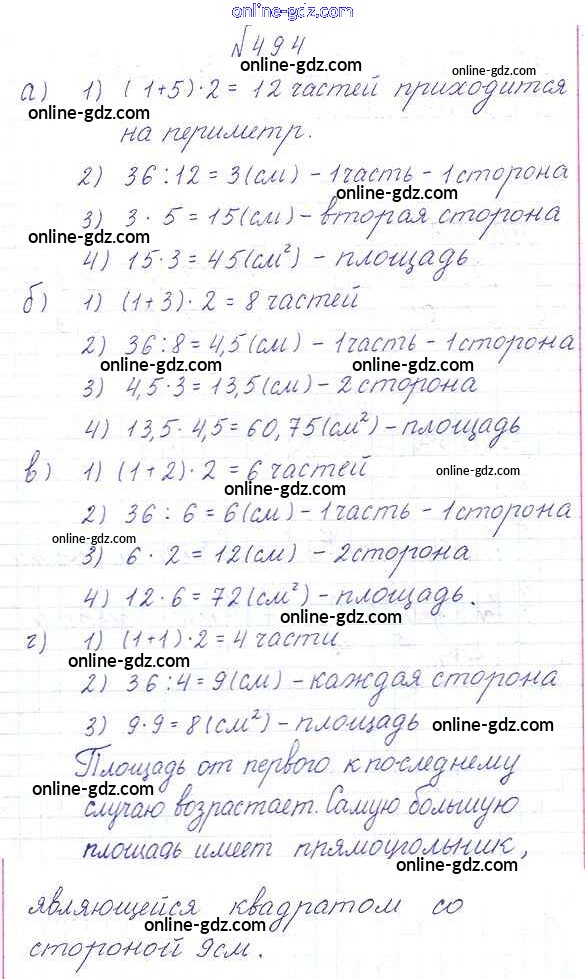 online-gdz.com
№494
online-gdz.com
а) 1) (1+5)·2 = 12 частей приходится
online-gdz.com
на периметр.
2) 36:12 = 3(см) - 1 часть - 1 сторона
online-gdz.com
3) 3 · 5 = 15(см) - вторая сторона
online-gdz.com
4) 15·3 = 45(см²) - площадь
online-gdz.com
б) 1) (1+3)·2 = 8 частей
2) 36:8 = 4,5(см) - 1 часть - 1 сторона
online-gdz.com
3) 4,5·3 = 13,5(см) - 2 сторона
online-gdz.com
4) 13,5·4,5 = 60,75(см²) - площадь
online-gdz.com
в) 1) (1+2)·2 = 6 частей
online-gdz.com
online-gdz.com
2) 36 : 6 = 6(см) - 1 часть - 1 сторона
online-gdz.com
3) 6 · 2 = 12(см) - 2 сторона
4) 12·6 = 72(см²) - площадь.
online-gdz.com
г) 1) (1+1)·2 = 4 части
online-gdz.com
2) 36:4 = 9(см) - каждая сторона
3) 9·9 = 8(см²) - площадь
online-gdz.com
Площадь от первого к последнему
online-gdz.com
случаю возрастает. Самую большую
площадь имеет прямоугольник,
online-gdz.com
являющейся квадратом со
online-gdz.com
стороной 9см.